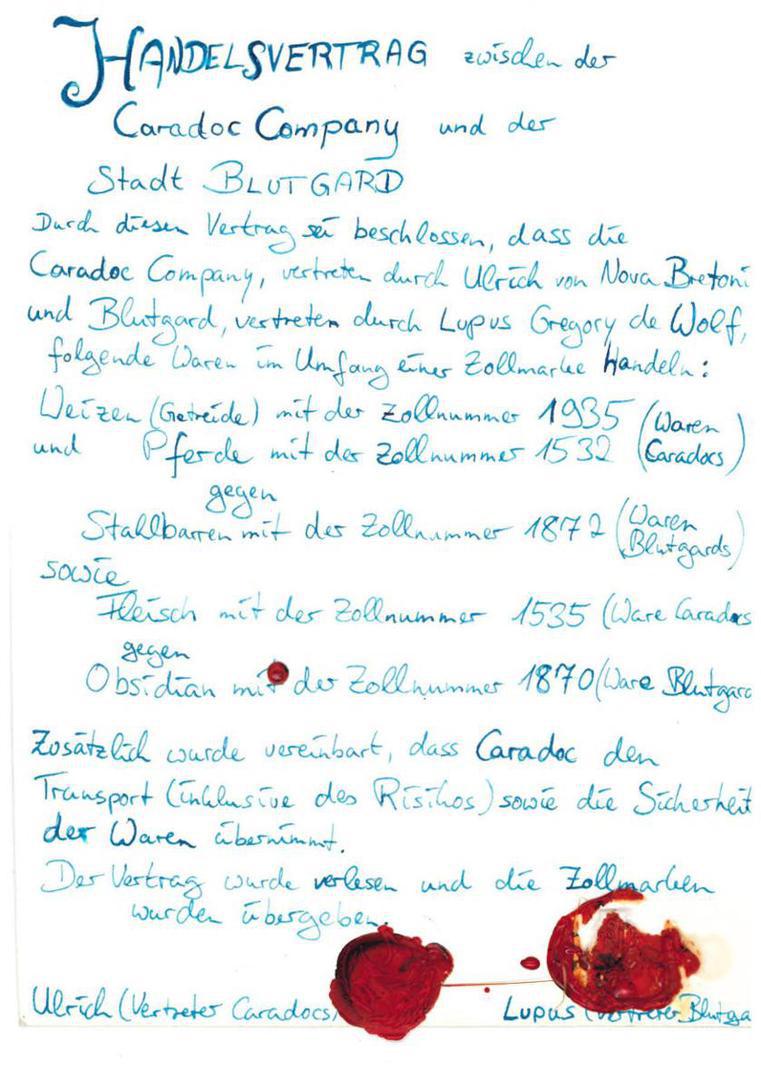 HANDELSVERTRAG zwischen der
Caradoc Company und der
Stadt BLUTGARD
Durch diesen Vertrag sei beschlossen, dass die
Caradoc Company, vertreten durch Ulrich von Nova Bretoni
und Blutgard, vertreten durch Lupus Gregory de Wolf,
folgende Waren im Umfang einer Zollmarke Handeln:
Weizen (Getreide) mit der Zollnummer 1935 (Waren
und Pferde mit der Zollnummer 1532 Caradocs)
gegen
Stahlbarren mit der Zollnummer 1872 (Waren
Blutgards)
sowie
Fleisch mit der Zollnummer 1535 (Ware Caradocs
gegen
Obsidian mit der Zollnummer 1870 (Ware Blutgard
Zusätzlich wurde vereinbart, dass Caradoc den
Transport (inklusive des Risikos) sowie die Sicherheit
der Waren übernimmt.
Der Vertrag wurde verlesen und die Zollmarken
wurden übergeben.
Ulrich (Vertreter Caradocs)
Lupus (Vertreter Blutga